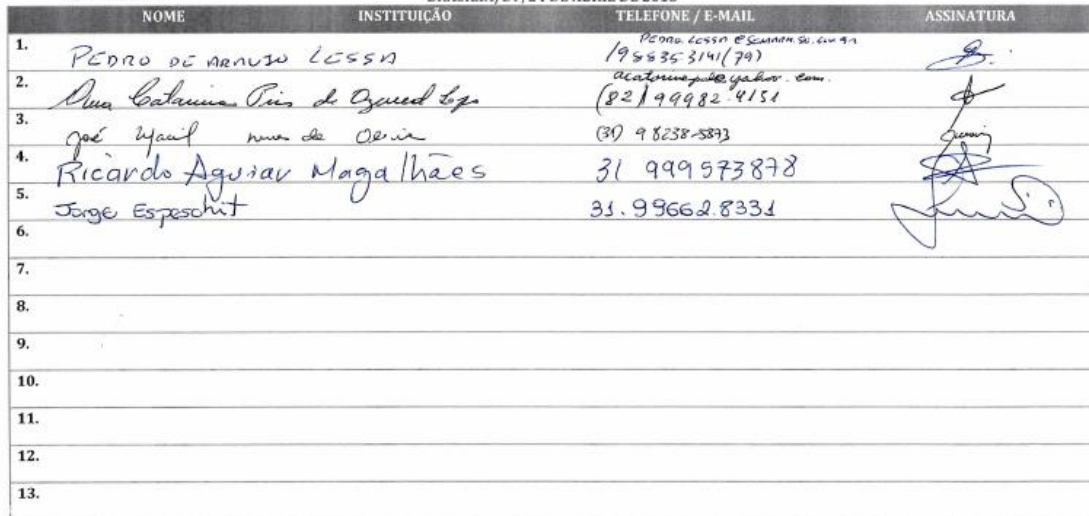 NOME INSTITUIÇÃO TELEFONE / E-MAIL ASSINATURA
1. PEDRO DE ARAUJO LESSA 988353141(79)
2. Ana Catarina Pires de Azevedo Lopes (82) 99982-4151
3. José Maciel Nunes de Oliveira (31) 98238-5873
4. Ricardo Aguiar Magalhães 31 999573878
5. Jorge Espeschit 31.99662.8331
6.
7.
8.
9.
10.
11.
12.
13.